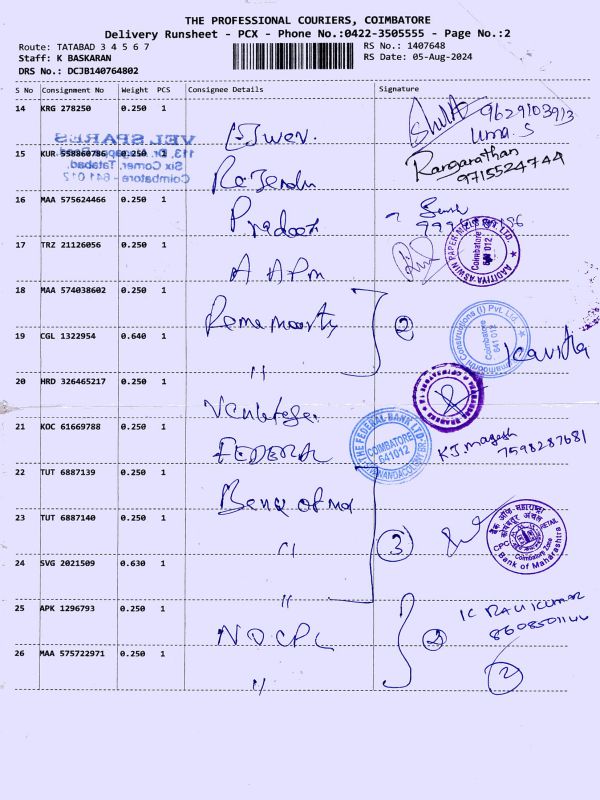 THE PROFESSIONAL COURIERS, COIMBATORE
Delivery Runsheet - PCX - Phone No.:0422-3505555 - Page No.:2
Route: TATABAD 3 4 5 6 7
RS No.: 1407648
Staff: K BASKARAN
RS Date: 05-Aug-2024
DRS No.: DCJB140764802
S No Consignment No Weight PCS Consignee Details Signature
14 KRG 278250 0.250 1
9629103913
Uma.S
VEL SPARES
15 KUR 558860786 0.250 1
Six Corner, Tatabad,
Coimbatore - 641 012
Ranganathan
9715524744
16 MAA 575624466 0.250 1 Pradeep
17 TRZ 21126056 0.250 1
AADITIYA ASWIN PAPER MILLS PVT LTD
Coimbatore
641 012
18 MAA 574038602 0.250 1 2
19 CGL 1322954 0.640 1 "
Constructions (I) Pvt. Ltd
Coimbatore
641 012
Kavitha
20 HRD 326465217 0.250 1
21 KOC 61669788 0.250 1 FEDERAL
THE FEDERAL BANK LTD.
COIMBATORE
641012
K.J. magesh
7598287681
22 TUT 6887139 0.250 1 Bank of ma
23 TUT 6887140 0.250 1 " 3
बैंक ऑफ महाराष्ट्र
कोयंबतूर अंचल
CPC
RETAIL
Coimbatore Zone
Bank of Maharashtra
24 SVG 2021509 0.630 1 "
25 APK 1296793 0.250 1 2
K RAVIKUMAR
26 MAA 575722971 0.250 1 " 2